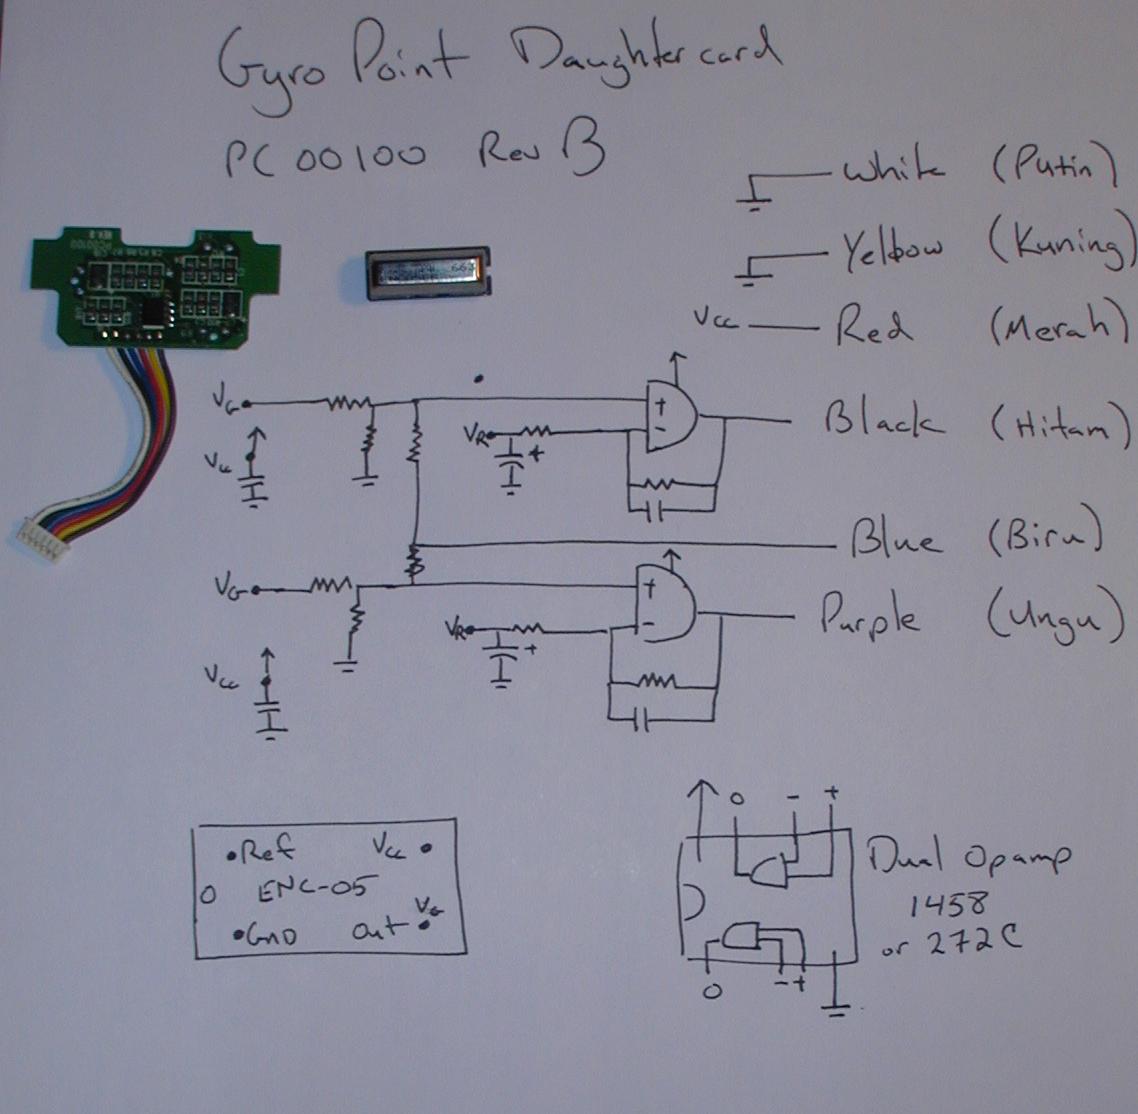 Gyro Point Daughtercard
PC00100 Rev B
White (Putin)
Yellow (Kuning)
Vcc Red (Merah)
VG
VR
+
-
Black (Hitam)
Vcc
+
Blue (Biru)
VG
VR
+
-
Purple (Ungu)
Vcc
+
Ref Vcc
ENC-05
GND Out VG
O - +
Dual Opamp
1458
or 272C
O - +
REV. B
PC00100